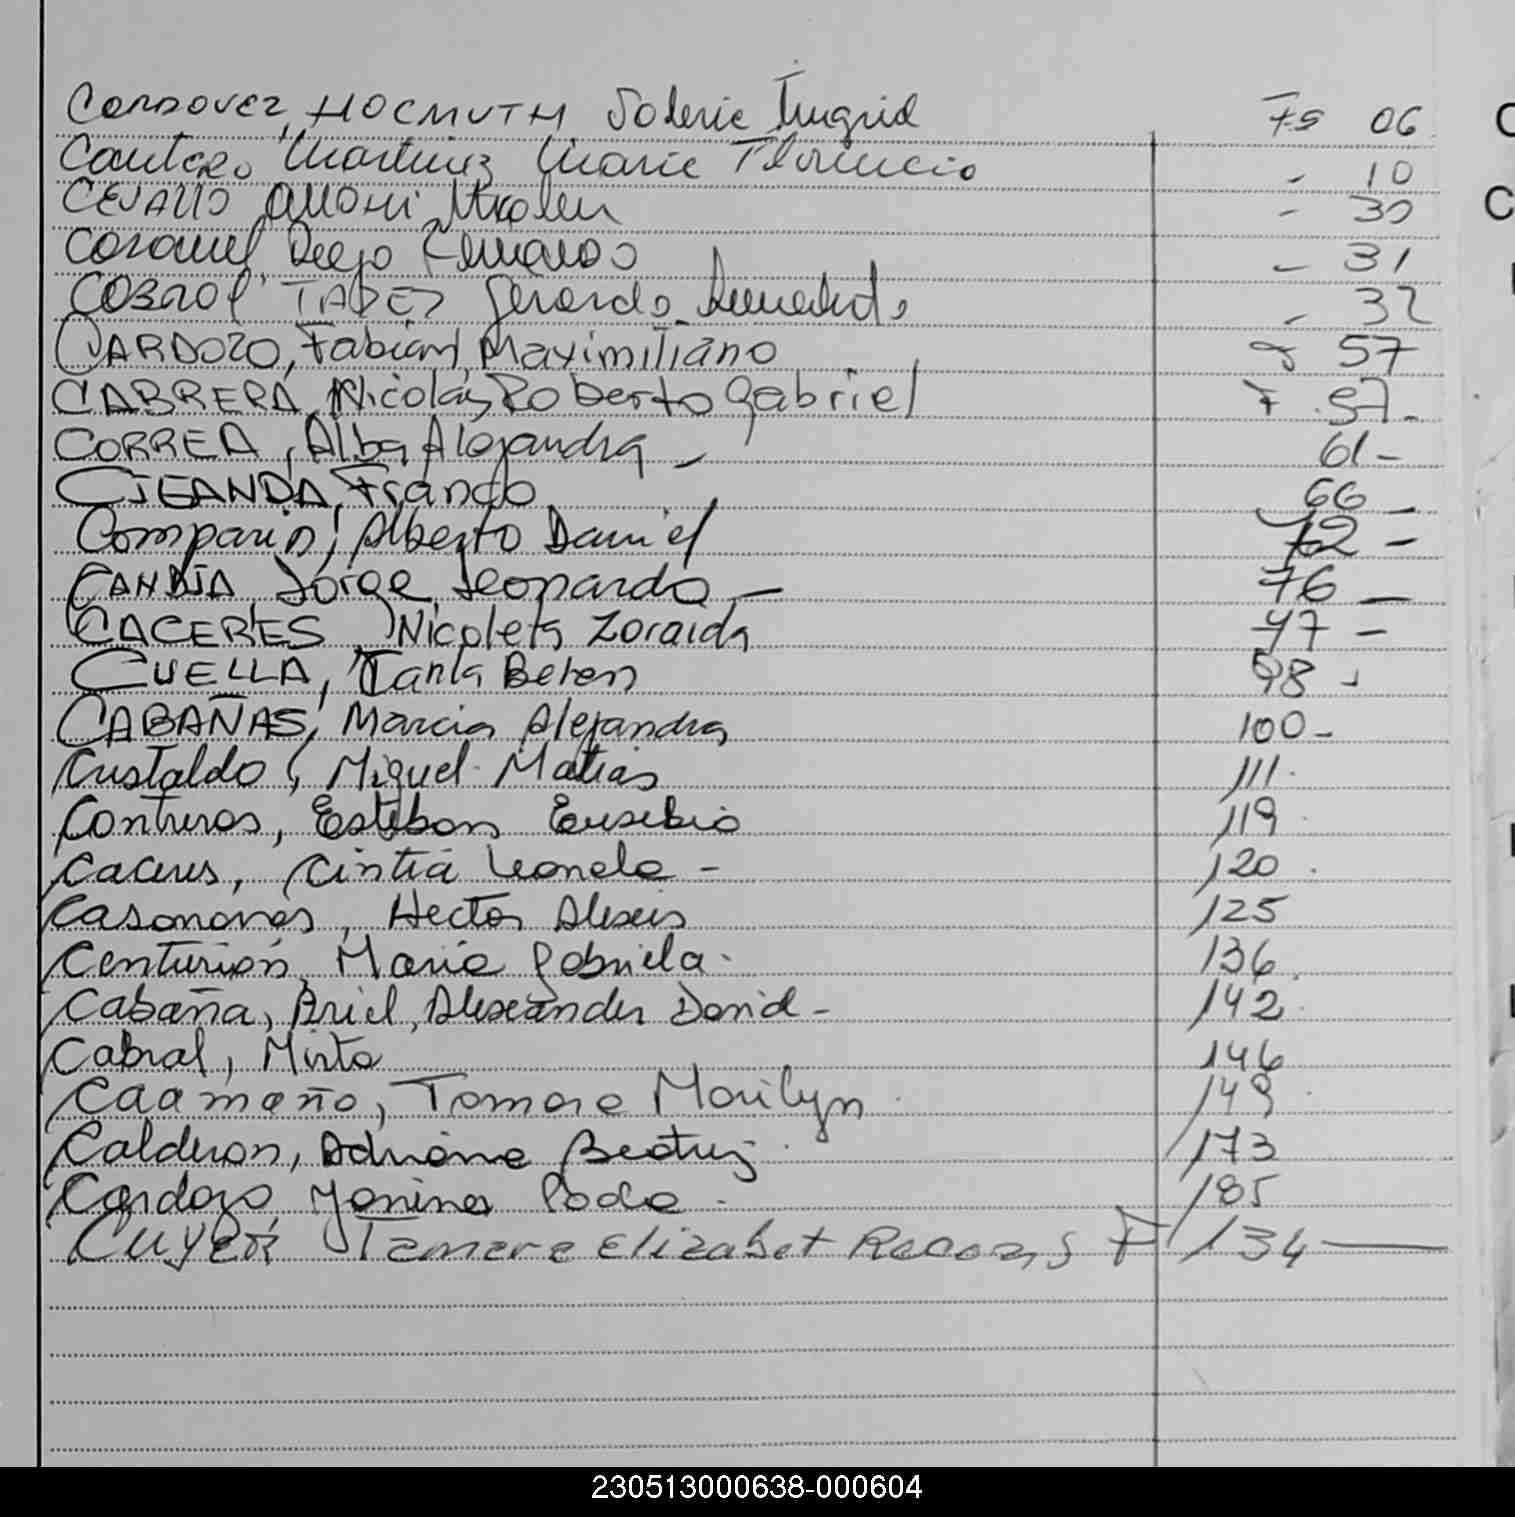 CORDOVEZ, HOCMUTH Valerie Ingrid Fs 06
Cantero Martinez Marie Florencia - 10
CEVALLO - 30
CORONEL Diego Fernando - 31
COBROL TAPEZ Gerardo - 32
CARDOZO, Fabian, Maximiliano 57
CABRERA, Nicolás Roberto Gabriel F 57-
CORREA, Alba Alejandra - 61-
CIEANDA, Franco 66 -
Comparin, Alberto Daniel 72 -
CANDIA Jorge Leonardo - 76 -
CACERES Nicoleta Zoraida 77 -
CUELLA, Tania Belen 98 -
CABAÑAS, Marcia Alejandra 100-
Custaldo, Miguel Matias 111.
Contreras, Esteban Eusebio 119
Caceres, Cintia Leonela - 120
Casanovas, Hector Alexis 125
Centurión, Maria Gabriela. 136.
Cabaña, Ariel, Alexander David - 142.
Cabral, Mirta 146
Caamaño, Tamara Marilyn 149
Calderon, Adriana Beatriz 173
Cardozo Yanina Paola 185
Cuyer Tamara Elizabet F 134
230513000638-000604